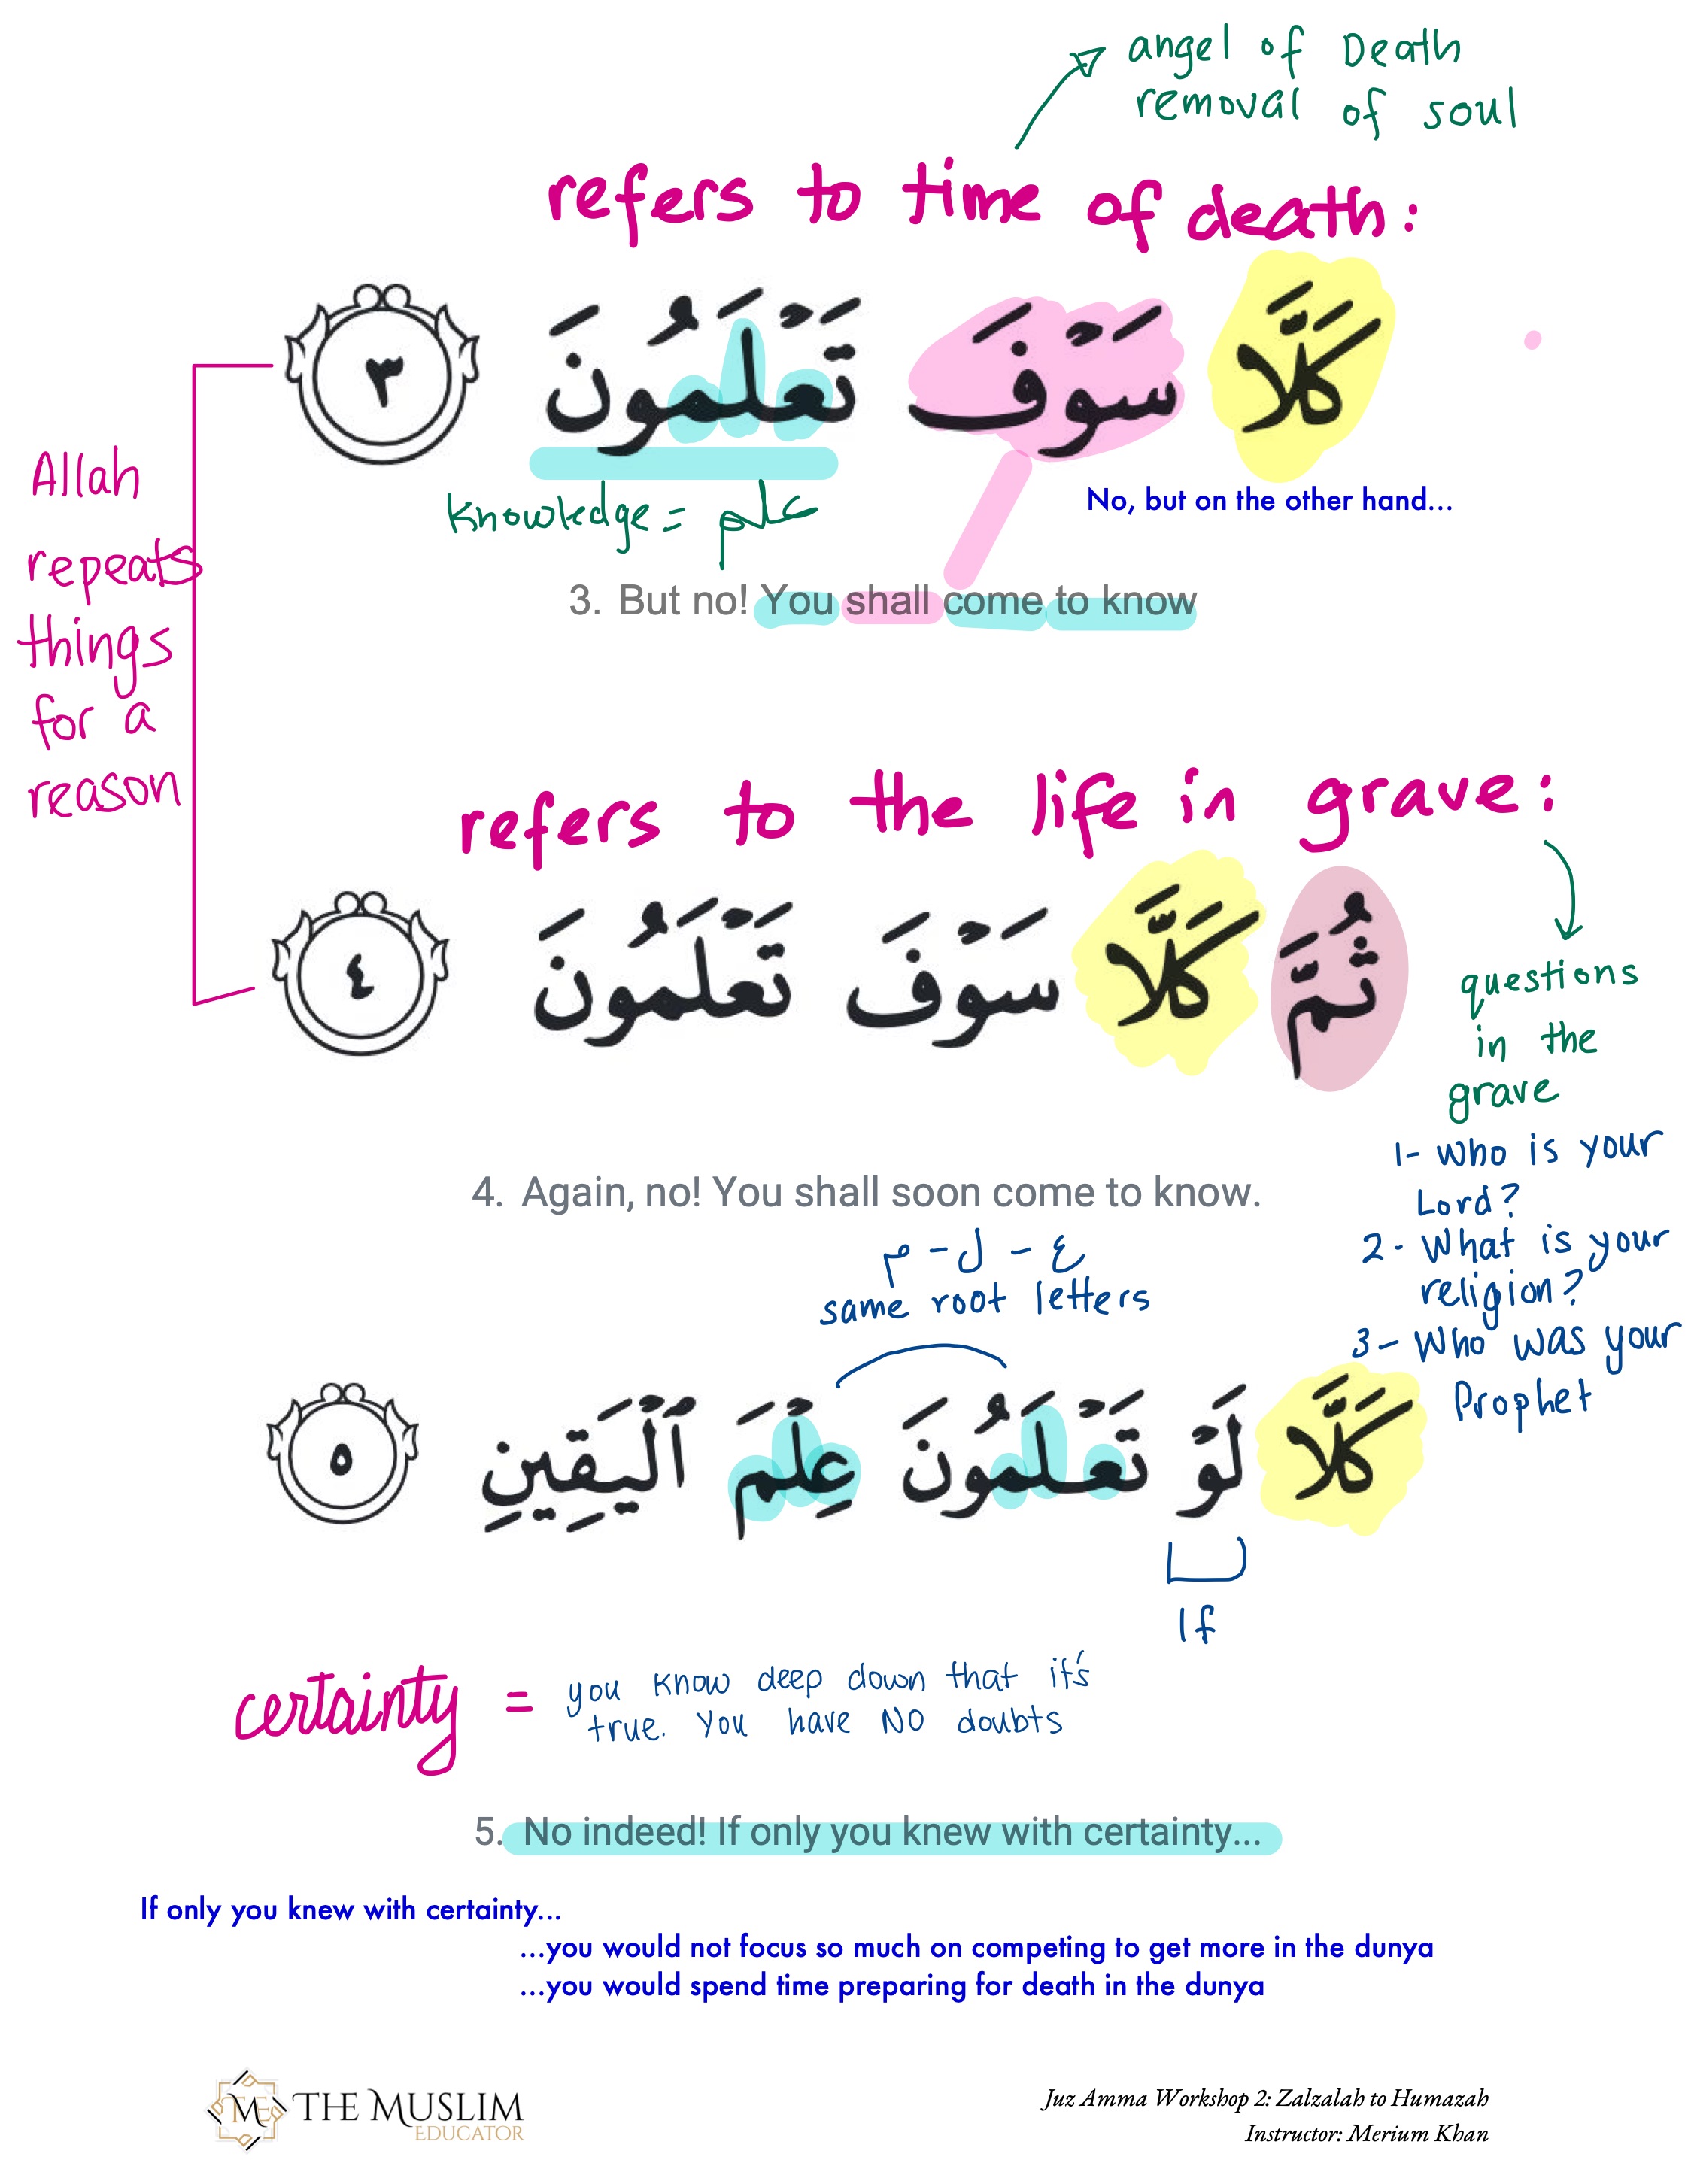 angel of Death
removal of soul
refers to time of death:
كَلَّا سَوْفَ تَعْلَمُونَ ٣
Knowledge = علم
No, but on the other hand...
3. But no! You shall come to know
Allah
repeats
things
for a
reason
refers to the life in grave:
ثُمَّ كَلَّا سَوْفَ تَعْلَمُونَ ٤
questions
in the
grave
1- Who is your
Lord?
2- What is your
religion?
3- Who was your
Prophet
4. Again, no! You shall soon come to know.
ع - ل - م
same root letters
كَلَّا لَوْ تَعْلَمُونَ عِلْمَ ٱلْيَقِينِ ٥
If
certainty = you know deep down that it's
true. You have NO doubts
5. No indeed! If only you knew with certainty...
If only you knew with certainty...
...you would not focus so much on competing to get more in the dunya
...you would spend time preparing for death in the dunya
ME THE MUSLIM
EDUCATOR
Juz Amma Workshop 2: Zalzalah to Humazah
Instructor: Merium Khan